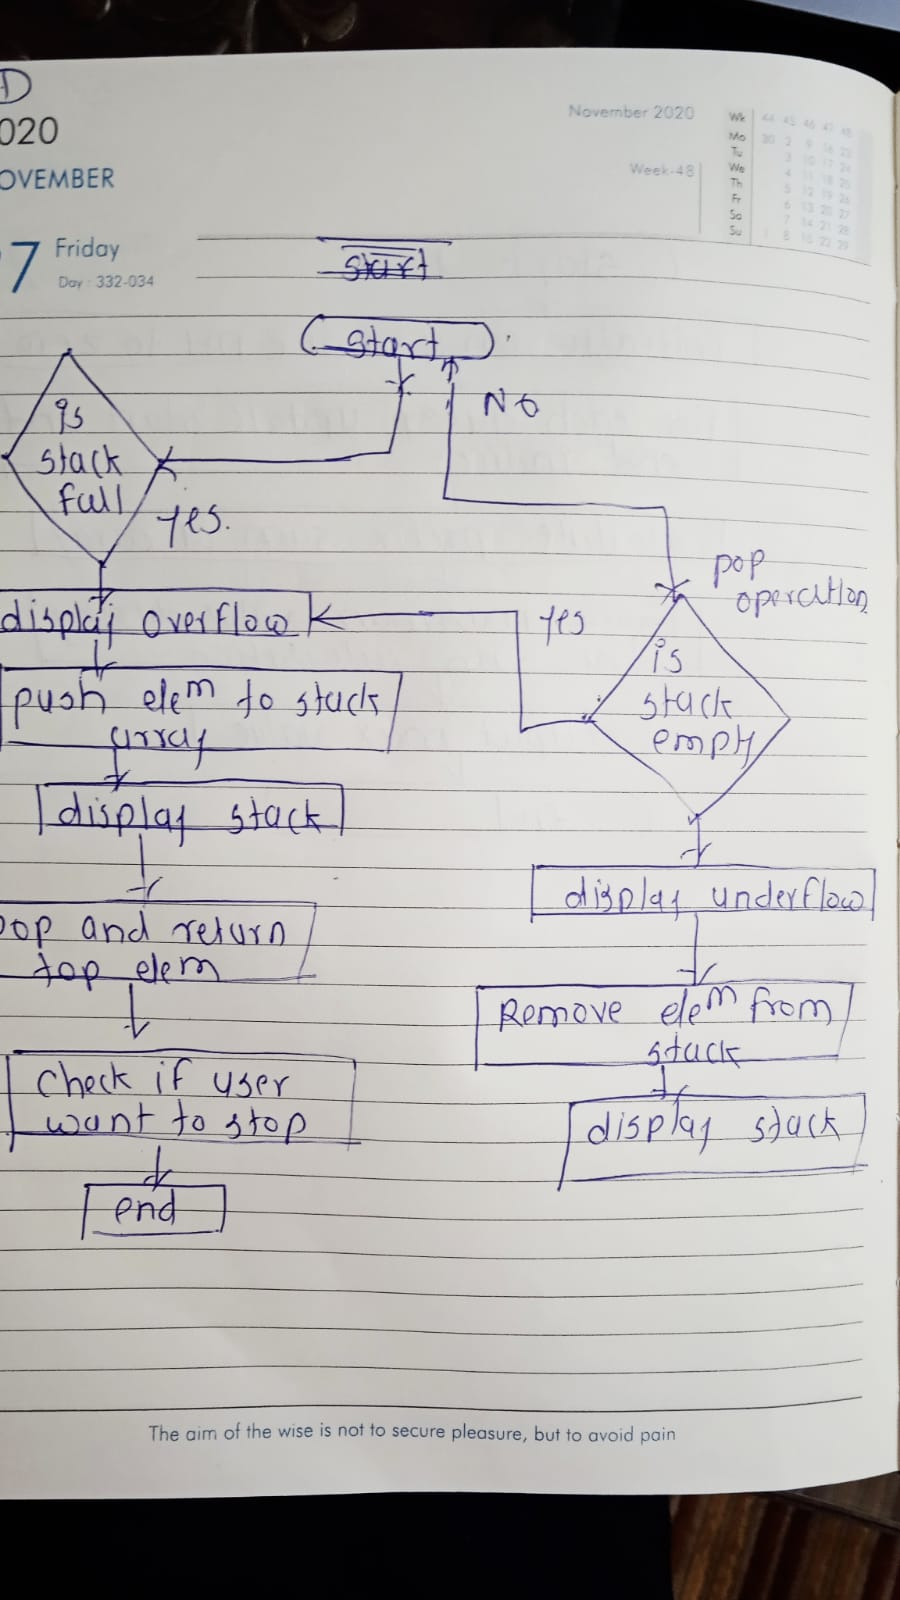 D
020
OVEMBER
7 Friday
Day : 332-034
November 2020
Week-48
Wk 44 45 46 47 48
Mo 30 2 9 16 23
Tu 3 10 17 24
We 4 11 18 25
Th 5 12 19 26
Fr 6 13 20 27
Sa 7 14 21 28
Su 1 8 15 22 29
start
start
No
is
stack
full
yes.
display overflow
push elem to stack
array
display stack
pop and return
top elem
Check if user
want to stop
end
pop
operation
yes
is
stack
empty
display underflow
Remove elem from
stack
display stack
The aim of the wise is not to secure pleasure, but to avoid pain